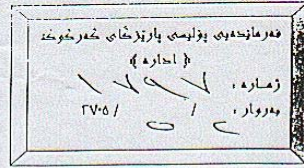 فەرماندەیی پۆلیسی پارێزگای کەرکوک
( ادارە )
ژمارە : ١٧٩٧
بەروار : / / ٢٧٠٥